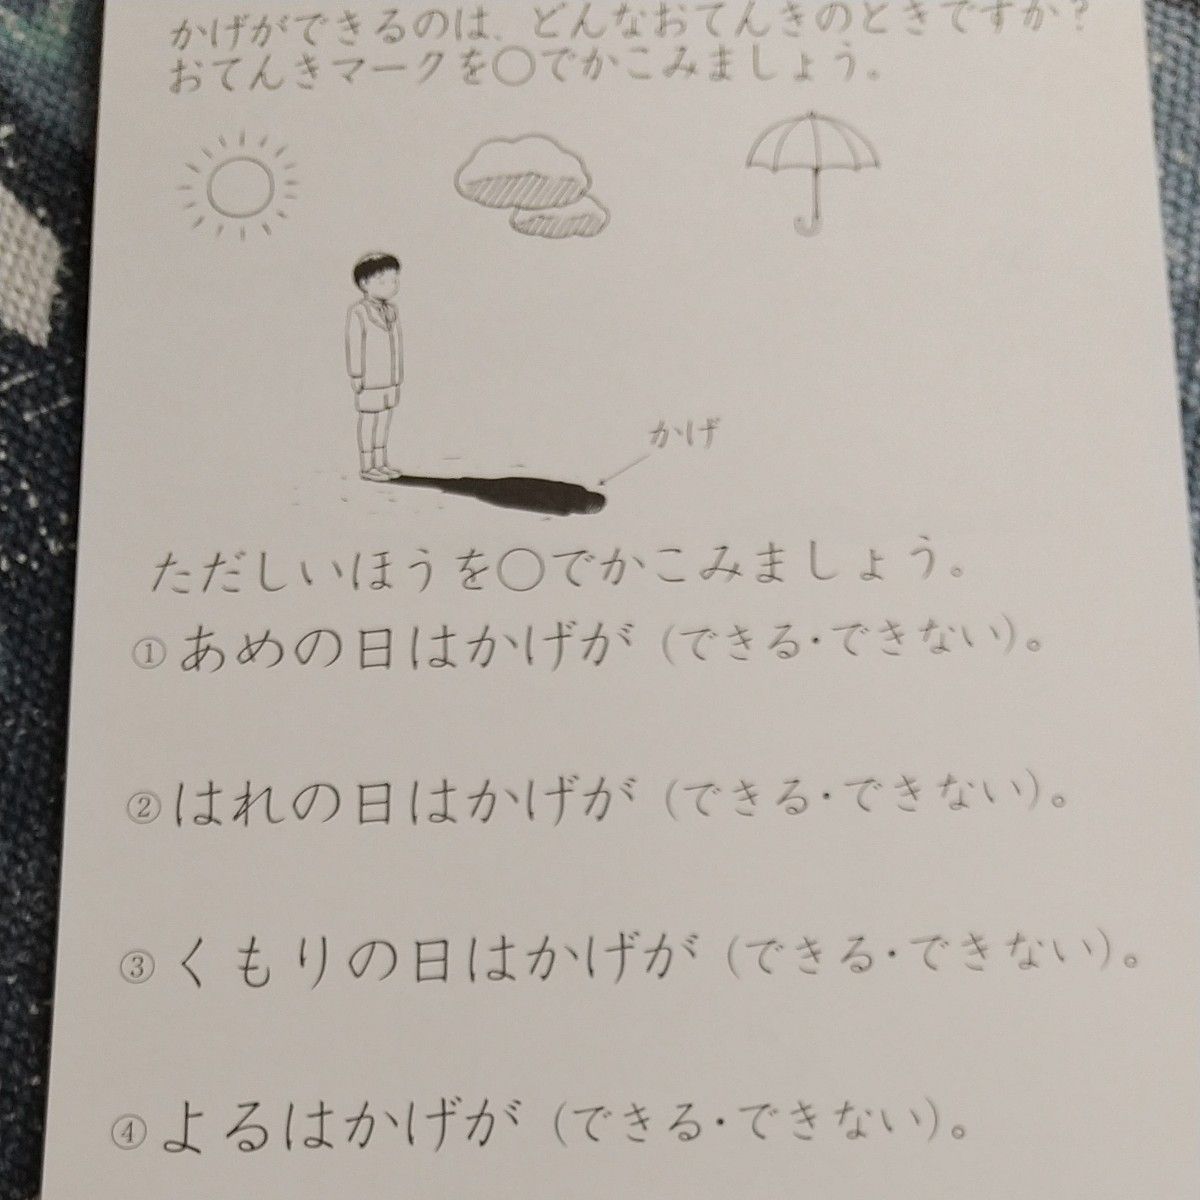 かげができるのは、どんなおてんきのときですか?
おてんきマークを○でかこみましょう。
かげ
ただしいほうを○でかこみましょう。
①あめの日はかげが(できる・できない)。
②はれの日はかげが(できる・できない)。
③くもりの日はかげが(できる・できない)。
④よるはかげが(できる・できない)。